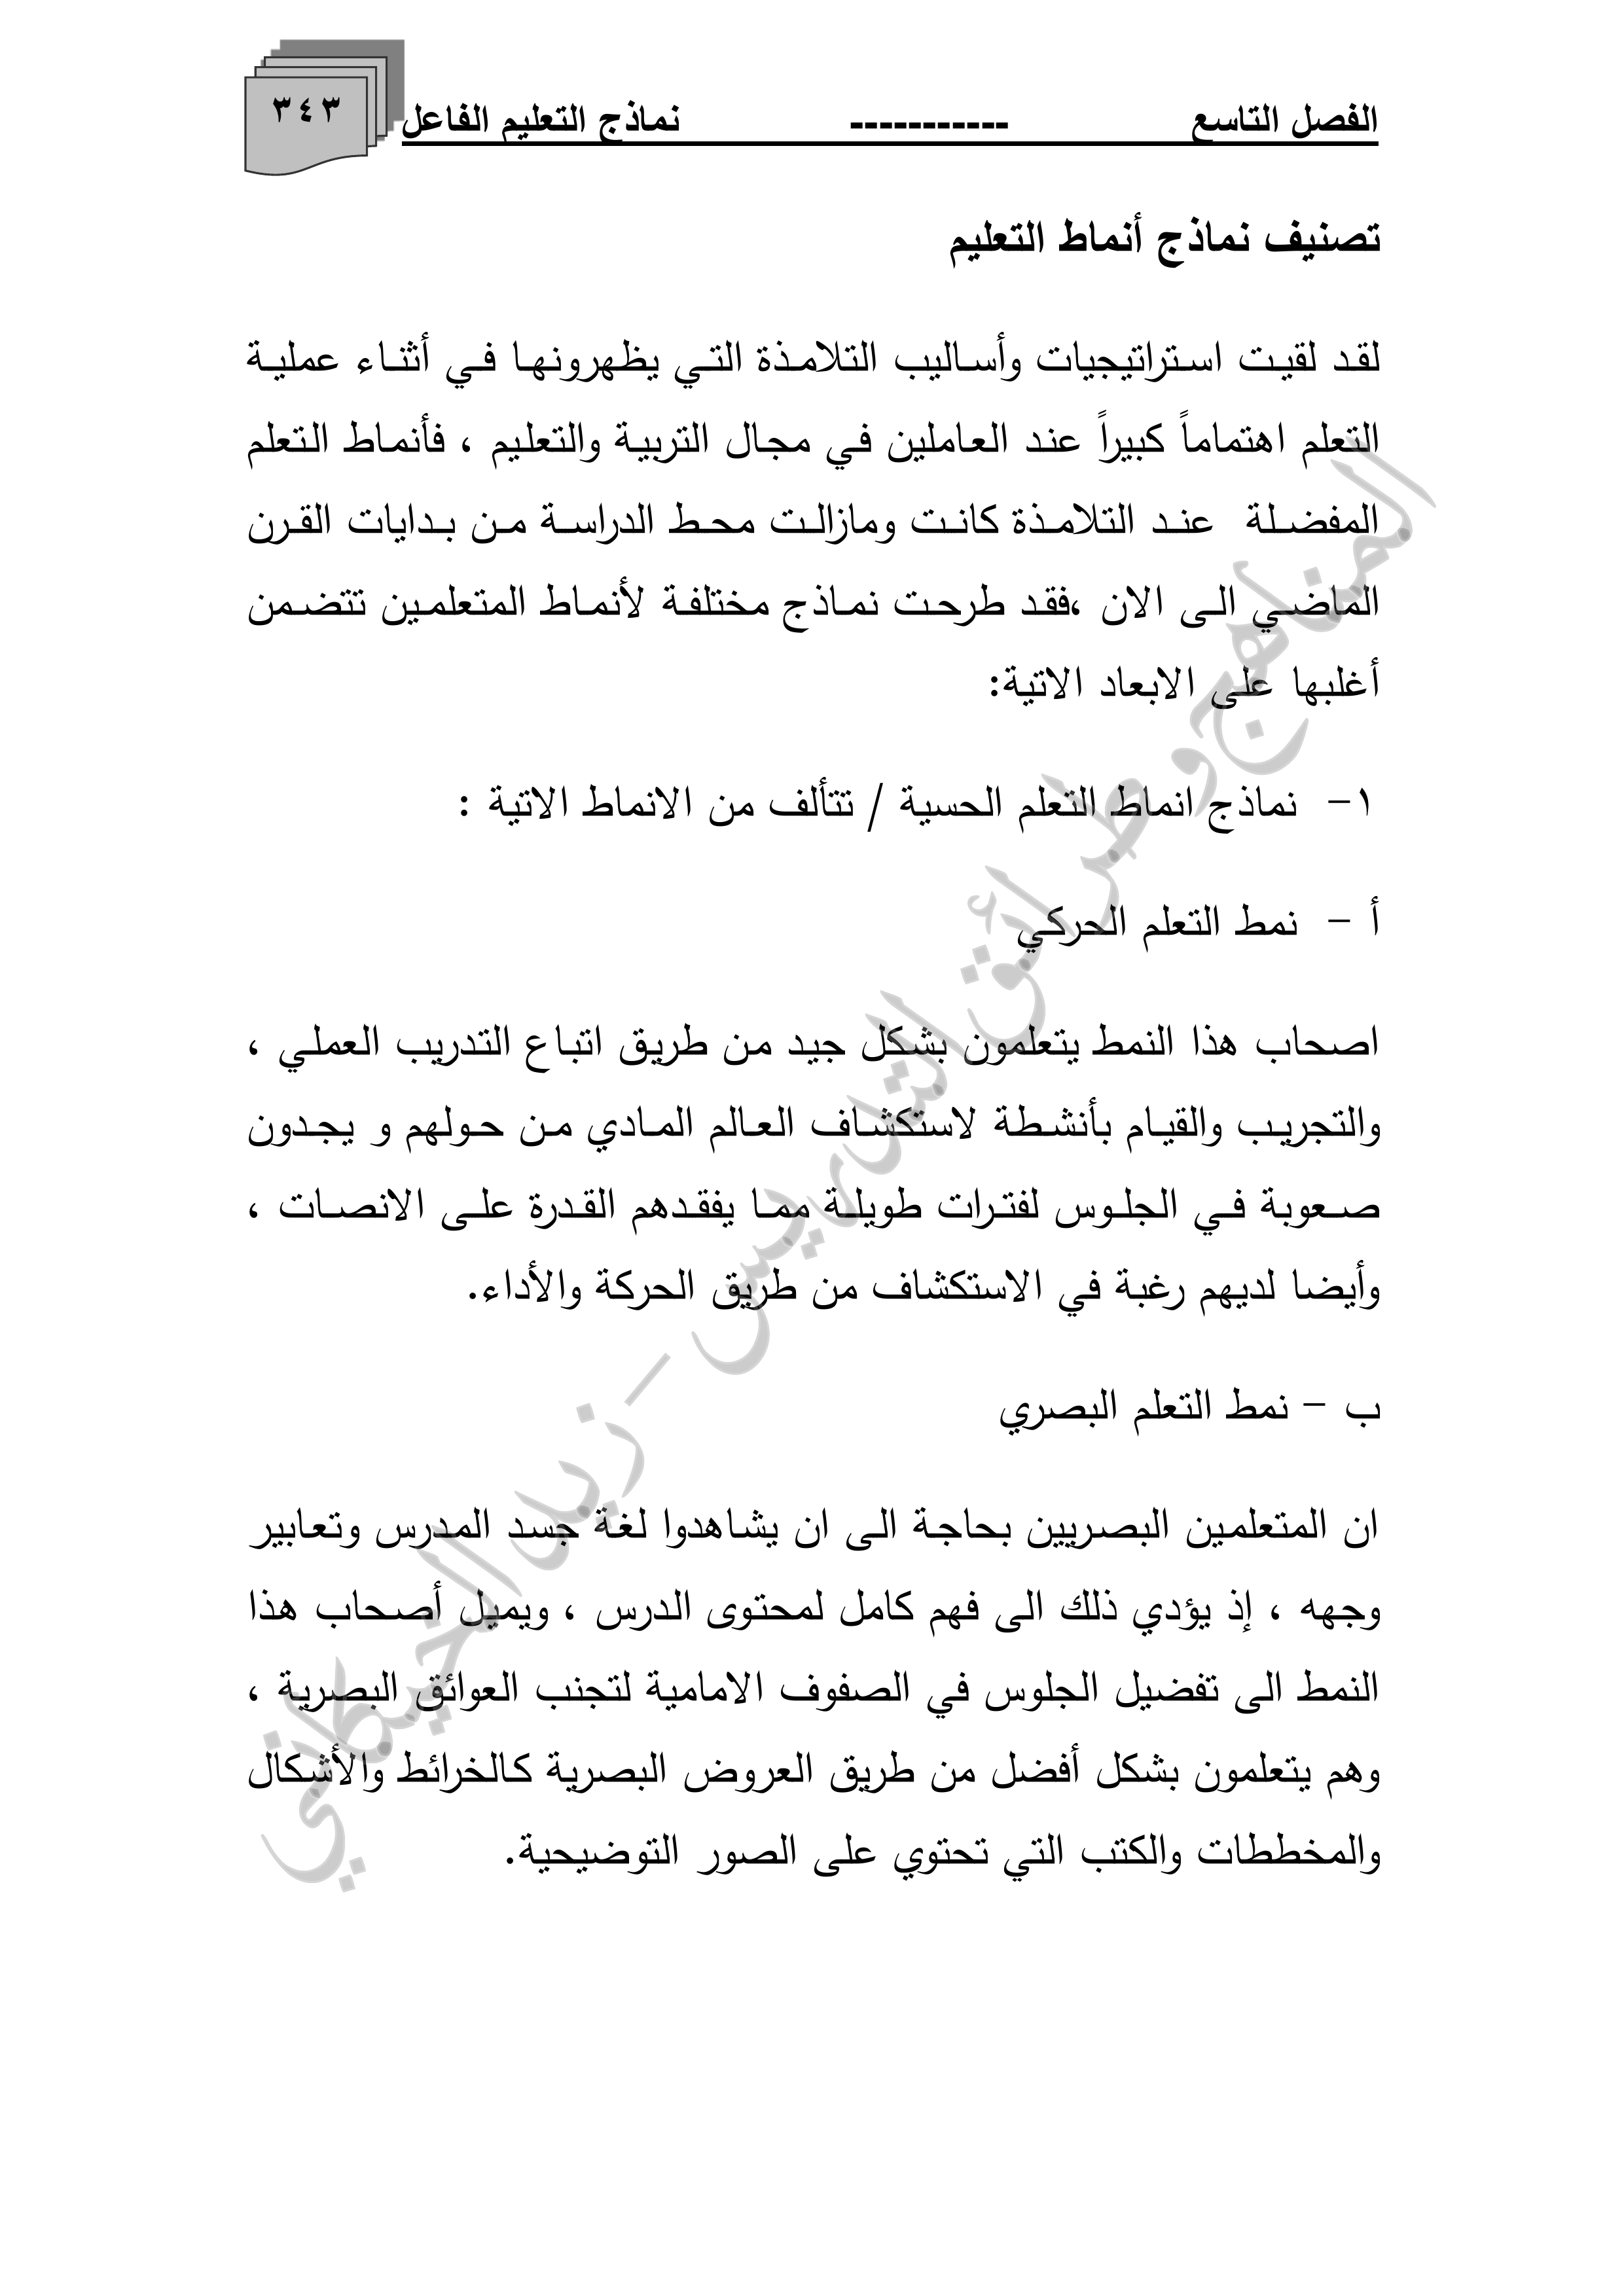 الفصل التاسع ----------- نماذج التعليم الفاعل ٣٤٣
تصنيف نماذج أنماط التعليم
لقد لقيت استراتيجيات وأساليب التلامذة التي يظهرونها في أثناء عملية
التعلم اهتماماً كبيراً عند العاملين في مجال التربية والتعليم ، فأنماط التعلم
المفضلة عند التلامذة كانت ومازالت محط الدراسة من بدايات القرن
الماضي الى الان ،فقد طرحت نماذج مختلفة لأنماط المتعلمين تتضمن
أغلبها على الابعاد الاتية:
١- نماذج انماط التعلم الحسية / تتألف من الانماط الاتية :
أ - نمط التعلم الحركي
اصحاب هذا النمط يتعلمون بشكل جيد من طريق اتباع التدريب العملي ،
والتجريب والقيام بأنشطة لاستكشاف العالم المادي من حولهم و يجدون
صعوبة في الجلوس لفترات طويلة مما يفقدهم القدرة على الانصات ،
وأيضا لديهم رغبة في الاستكشاف من طريق الحركة والأداء.
ب - نمط التعلم البصري
ان المتعلمين البصريين بحاجة الى ان يشاهدوا لغة جسد المدرس وتعابير
وجهه ، إذ يؤدي ذلك الى فهم كامل لمحتوى الدرس ، ويميل أصحاب هذا
النمط الى تفضيل الجلوس في الصفوف الامامية لتجنب العوائق البصرية ،
وهم يتعلمون بشكل أفضل من طريق العروض البصرية كالخرائط والأشكال
والمخططات والكتب التي تحتوي على الصور التوضيحية.
المناهج وطرائق التدريس - زيد الخيكاني